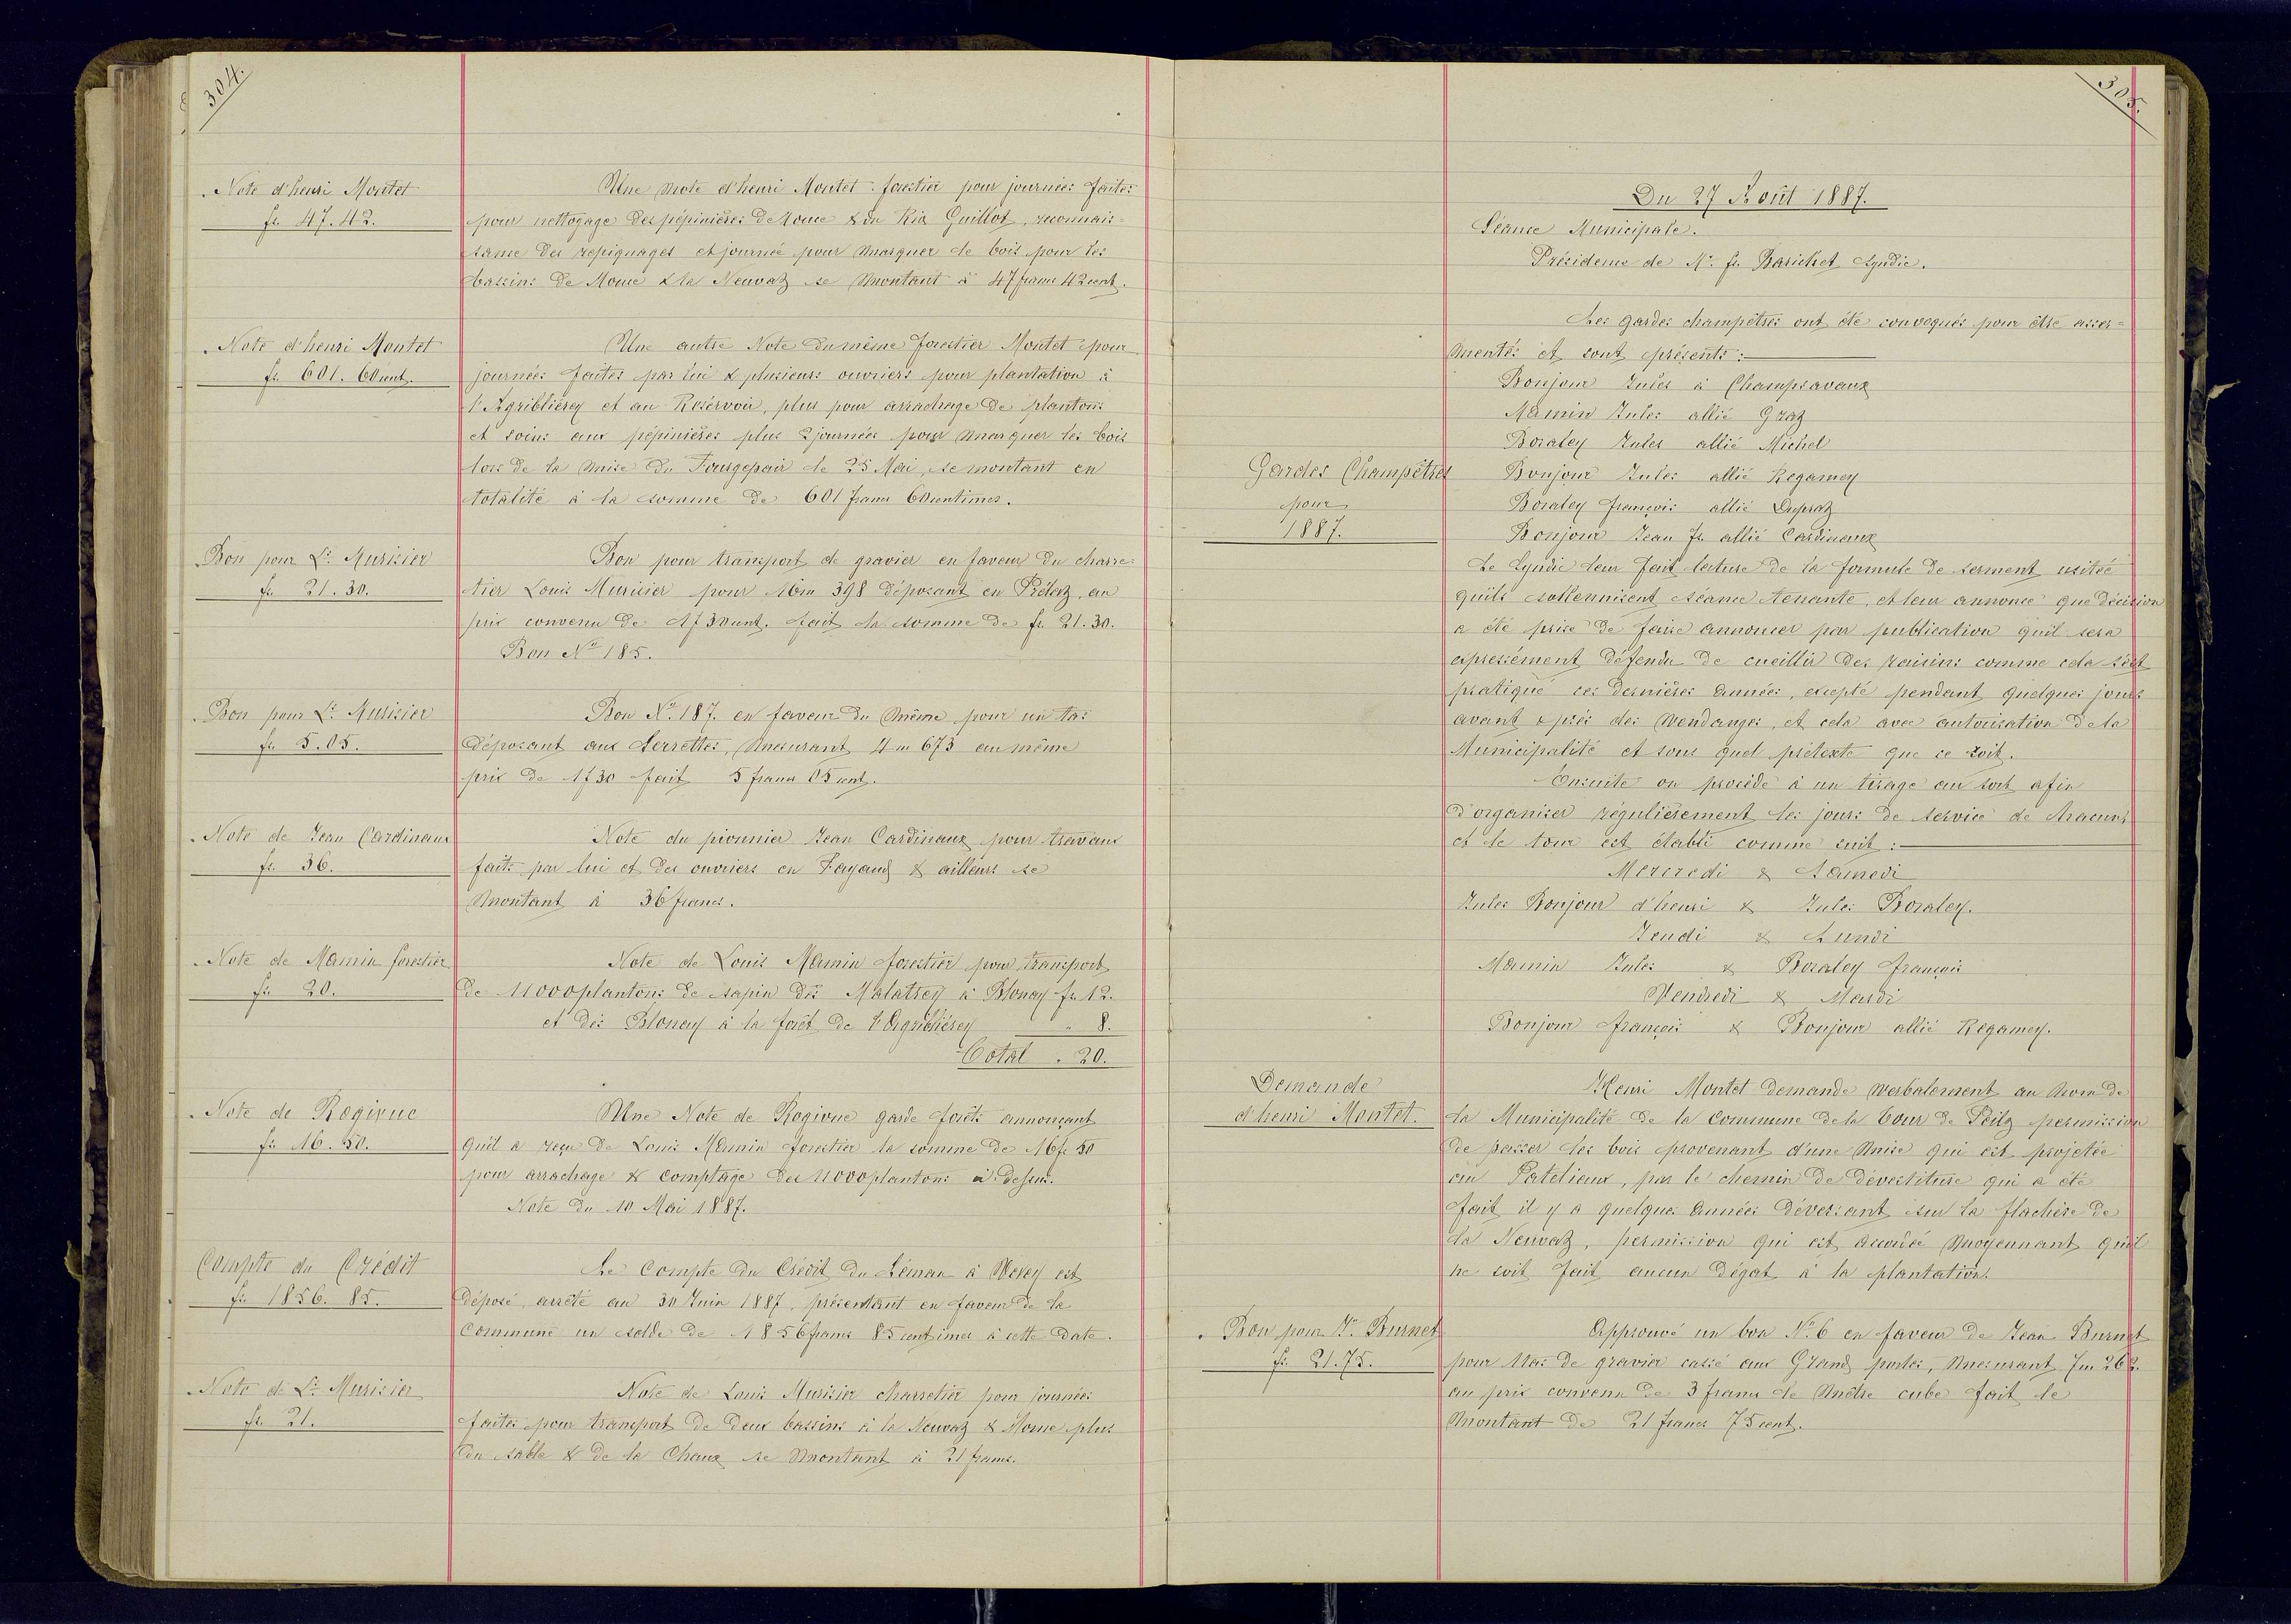 304.
Note d'henri Montet
fr. 47.42.
Une note d'henri Montet forestier pour journées faites
pour nettoyage des pépinières de Mouce & du Ria Guillot, reconnais=
sance des repiquages et journée pour marquer le bois pour les
bassins de Mouce & la Neuvaz se montant à 47 francs 42 cent.
Note d'henri Montet
fr. 601. 60 cent.
Une autre Note du même forestier Montet pour
journées faites par lui & plusieurs ouvriers pour plantation à
l'Agribliérey et au Réservoir, plus pour arrachage de plantons
et soins aux pépinières plus 2 journées pour marquer les bois
lors de la mise du le 25 Mai, se montant en
totalité à la somme de 601 francs 60 centimes.
Bon pour Ls. Murisier
fr. 21.30.
Bon pour transport de gravier en faveur du charre=
tier Louis Murisier pour 16m 398 déposant en Prélaz, au
prix convenu de 1f 30 cent. fait la somme de fr. 21.30.
Bon No 185.
Bon pour Ls. Murisier
fr. 5.05.
Bon No. 187. en faveur du même pour un tas
déposant aux Serrettes, mesurant 4m 673 au même
prix de 1f 30 fait 5 francs 05 cent.
Note de Jean Cardinaux
fr. 36.
Note du pionnier Jean Cardinaux pour travaux
faits par lui et des ouvriers en Fayaux & ailleurs se
montant à 36 francs.
Note de Mamin forestier
fr. 20.
Note de Louis Mamin forestier pour transport
de 11000 plantons de sapin dès Malatrey à Blonay fr. 12.
et dès Blonay à la forêt de l'Agribliérey " 8.
Total . 20.
Note de Rogivue
fr. 16. 50.
Une Note de Rogivue garde forêts annonçant
qu'il a reçu de Louis Mamin forestier la somme de 16 fr 50
pour arrachage & comptage des 11000 plantons ci dessus.
Note du 10 Mai 1887.
Compte du Crédit
fr. 1856. 85.
Le Compte du Crédit du Léman à Vevey est
déposé, arrêté au 30 Juin 1887, présentant en faveur de la
Commune un solde de 1856 francs 85 centimes à cette date.
Note de Ls. Murisier
fr. 21.
Note de Louis Murisier charretier pour journées
faites pour transport de deux bassins à la Neuvaz & Mouce plus
du sable & de la Chaux se montant à 21 francs.
305.
Du 27 Août 1887.
Séance Municipale.
Présidence de Mr. fs. Barichet Syndic.
Gardes Champêtres
pour
1887.
Les gardes champêtres ont été convoqués pour être asser=
mentés et sont présents :
Bonjour Jules à Champsavaux
Mamin Jules allié Graz
Boraley Jules allié Michel
Bonjour Jules allié Regamey
Boraley françois allié Dupraz
Bonjour Jean fs. allié Cardinaux
Le Syndic leur fait lecture de la formule de serment usitée
qu'ils sollennisent séance tenante, et leur annonce que décision
a été prise de faire annoncer par publication qu'il sera
expressément défendu de cueillir des raisins comme cela s'est
pratiqué ces dernières années, excepté pendant quelques jours
avant & près des vendanges, et cela avec autorisation de la
Municipalité et sous quel prétexte que ce soit.
Ensuite on procède à un tirage au sort afin
d'organiser régulièrement les jours de service de chacuns
et le tour est établi comme suit :
Mercredi & Samedi
Jules Bonjour d'henri & Jules Boraley.
Jeudi & Lundi
Mamin Jules & Boraley françois
Vendredi & Mardi
Bonjour françois & Bonjour allié Regamey.
Demande
d'henri Montet.
Henri Montet demande verbalement au nom de
la Municipalité de la Commune de la Tour de Peilz permission
de passer les bois provenant d'une mise qui est projetée
au Patelieux, par le chemin de dévestiture qui a été
fait il y a quelques années déversant sur la flachère de
la Neuvaz, permission qui est accordée moyennant qu'il
ne soit fait aucun dégat à la plantation.
Bon pour Jn. Burnet
fr. 21.75.
Approuvé un bon No. 6 en faveur de Jean Burnet
pour 1 tas de gravier cassé aux Grands portes, mesurant 7m 262.
au prix convenu de 3 francs le mètre cube fait le
montant de 21 francs 75 cent.